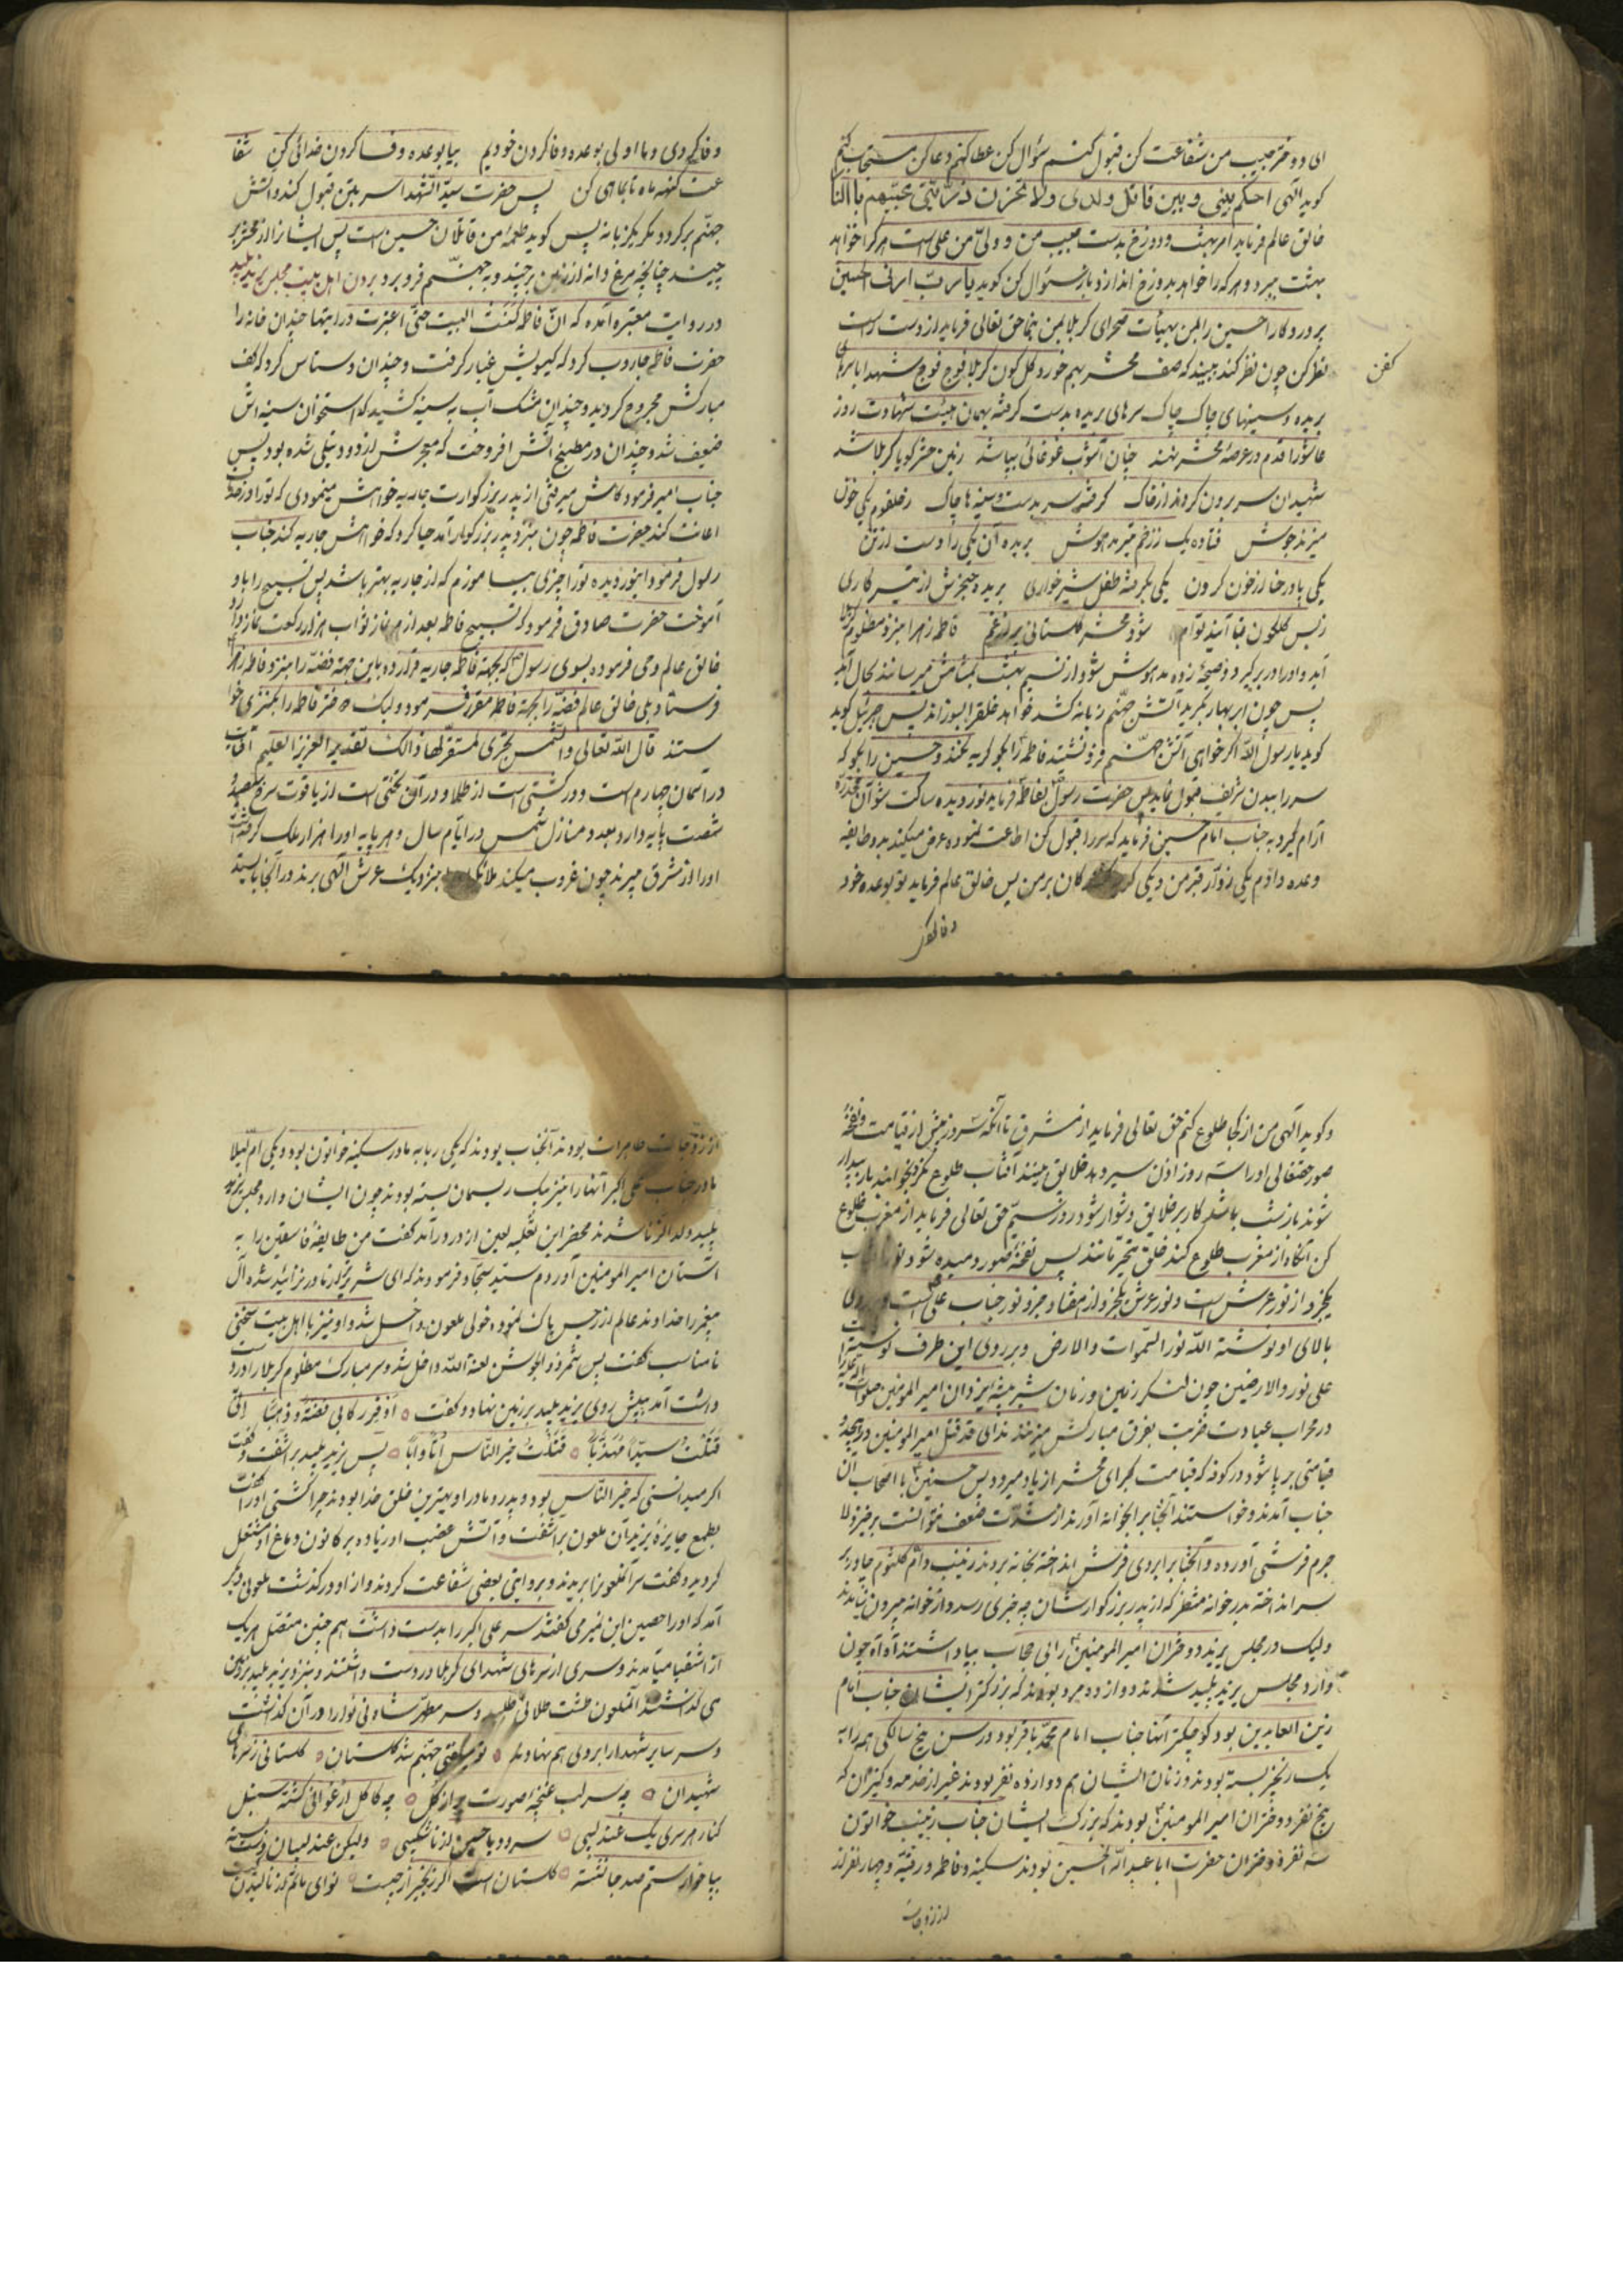 ای دختر حبیب من شفاعت کن قبول کنم سؤال کن عطا کنم دعا کن مستجاب کنم
گوید الهی احکم بینی و بین قاتل ولدی ولا تحزن ذریتی محبیهم باالنار
خالق عالم فرماید امر بهشت و دوزخ بدست حبیب من و ولی من علی است هر کرا خواهد
بهشت ببرد و هر که را خواهد بدوزخ اندازد باز سؤال کن گوید یا رب ارنی الحسین
پروردگارا حسین را بمن بهیأت صحرای کربلا بمن بنما حق تعالی فرماید از دست راست
نظر کن چون نظر کند ببیند که صف محشر بهم خورد گل گون کربلا فوج فوج شهدا با سرهای
کفن
بریده و سینهای چاک چاک سرهای بریده بدست گرفته بهمان هیئت شهادت روز
عاشورا قدم در عرصه محشر نهند چنان آشوب غوغائی بپا شد زمین حشر گویا کربلا شد
شهیدان سر برون کردند از خاک گرفته سر بدست و سینه ها چاک ز حلقوم یکی خون
میزند جوش فتاده یک ز زخم تیر مدهوش بریده آن یکی را دست از تن
یکی پا در حنا از خون کردن یکی بگرفته طفل شیر خواری بریده حنجرش از تیر کاری
ز بس گلگون قبا آیند توأم شود محشر گلستانی پر از غم فاطمه زهرا بنزد مظلوم کربلا
آید و او را در بر گیرد و صیحه زده مدهوش شود از نسیم بهشت بمشامش میرسانند بحال آید
پس چون ابر بهار بگرید آتش جهنم زبانه کشد خواهد خلق را بسوزاند پس جبرئیل گوید
گوید یا رسول الله اگر خواهی آتش جهنم فرو نشیند فاطمه را بگو گریه نکند و حسین را بگو که
سر را ببدن شریف قبول نماید پس حضرت رسول بفاطمه فرماید نور دیده ساکت شو آن مخدره
آرام گیرد به جناب امام حسین فرماید که سر را قبول کن اطاعت نموده عرض میکند بدو طایفه
وعده دادم یکی زوار قبر من و یکی گریه کنندگان بر من پس خالق عالم فرماید تو بوعده خود
وفا کردی و ما اولی بوعده وفا کردن خودیم بیا بوعده وفا کردن خدائی کن شفا
عت گنه ماه تا بماهی کن پس حضرت سید الشهدا سر بتن قبول کند و آتش
جهنم برگردد مگر یکزبانه پس گوید طعمه من قاتلان حسین است پس ایشانرا از محشر بر
چیند چنانچه مرغ دانه از زمین بر چیند و به جهنم فرو برد بردن اهل بیت بمجلس یزید پلید
در روایت معتبره آمده که ان فاطمه کنست البیت حتی اغبرت در اینها چندان خانه را
حضرت فاطمه جاروب کرد که گیسویش غبار گرفت و چندان دستاس کرد که کف
مبارکش مجروح گردید و چندان مشک آب به سینه کشید که استخوان سینه اش
ضعیف شد و چندان در مطبخ آتش افروخت که معجرش از دود نیلی شده بود پس
جناب امیر فرمود کاش میرفتی از پدر بزرگوارت جاریه خواهش مینمودی که تو را در خدمت
اعانت کند حضرت فاطمه چون بنزد پدر بزرگوار آمد حیا کرد که خواهش جاریه کند جناب
رسول فرمود ای نور دیده تو را چیزی بیاموزم که از جاریه بهتر باشد پس تسبیح را باو
آموخت حضرت صادق فرمود که تسبیح فاطمه بعد از هر نماز ثواب هزار رکعت نماز دارد
خالق عالم وحی فرموده بسوی رسول که بجهة فاطمه جاریه قرار ده باین جهة فضه را بنزد فاطمه زهرا
فرستاد بلی خالق عالم فضه را بجهة فاطمه مقرر فرمود ولیک دختر فاطمه را بکنیزی خوا
ستند قال الله تعالی والشمس تجری لمستقر لها ذالک تقدیر العزیز العلیم آفتاب
در آسمان چهارم است و در کشتی است از طلا و در آن تختی است از یاقوت سرخ سیصد و
شصت پایه دارد بعدد منازل شمس در ایام سال و هر پایه او را هزار ملک گرفته است
او را از مشرق میبرند چون غروب میکند ملائکه او را بنزدیک عرش الهی برند در آنجا بایستد
وفا کر
و گوید الهی من از کجا طلوع کنم حق تعالی فرماید از مشرق تا آنکه سه روز پیش از قیامت و نفخه
صور حقتعالی او را سه روز اذن سیر دهد خلایق بینند آفتاب طلوع نکرد بخوابند باز بیدار
شوند باز شب باشد کار بر خلایق دشوار شود در روز سیم حق تعالی فرماید از مغرب طلوع
کن آنگاه از مغرب طلوع کند خلق متحیر مانند پس نفخه صور دمیده شود نور آفتاب
یکجزو از نور عرش است و نور عرش یکجزو از هفتاد جزو نور جناب علی است
بالای او نوشته الله نور السموات والارض و بر روی این طرف نوشته است
علی نور والارضین چون لنگر زمین و زمان شیر بیشه ایزدان امیر المؤمنین صلوات الله علیه را
در محراب عبادت ضربت بفرق مبارکش میزنند ندای قد قتل امیر المؤمنین در پیچد و
قیامتی بر پا شود در کوفه که قیامت کبرای محشر از یاد میرود پس حسنین با اصحاب آن
جناب آمدند و خواستند آنجناب را بخانه آورند از شدت ضعف نتوانست بر خیزد لا
جرم فرشی آورده و آنجناب را بروی فرش انداخته بخانه بردند زینب و ام کلثوم چادر بر
سر انداخته بدر خوانه منتظر که از پدر بزرگوارشان چه خبری رسد و از خوانه بیرون نیامدند
ولیک در مجلس یزید دختران امیر المؤمنین را بی حجاب بپا داشتند آه آه چون
وارد مجلس یزید پلید شدند دوازده مرد بودند که بزرگتر ایشان جناب امام
زین العابدین بود کوچکتر آنها جناب امام محمد باقر بود در سن پنج سالگی همه را به
یک زنجیر بسته بودند و زنان ایشان هم دوازده نفر بودند غیر از خدمه و کنیزان که
پنج نفر دختران امیر المؤمنین بودند که بزرگ ایشان جناب زینب خواتون
سه نفر دختران حضرت ابا عبدالله الحسین بودند سکینه و فاطمه و رقیه و چهار نفر اند
از زوجات
از زوجات طاهرات بودند آنجناب بودند که یکی ربابه مادر سکینه خواتون بود و یکی ام لیلا
مادر جناب علی اکبر آنها را نیز بیک ریسمان بسته بودند چون ایشان وارد مجلس یزید
پلید ولد الزنا شدند محضر ابن ثعلبه لعین از در در آمد گفت من طایفه فاسقین را به
آستان امیر المؤمنین آوردم سید سجاد فرمودند که ای شریرتر از مادر نزائیده شده آل
پیغمبر را خداوند عالم از رجس پاک نمود خولی ملعون داخل شد و او نیز با اهل بیت سخنی
نامناسب گفت پس شمر ذو الجوشن لعنة الله داخل شد و سر مبارک مظلوم کربلا را در دست
داشت آمد پیش روی یزید پلید بر زمین نهاد و گفت ه اوقر رکابی فضة و ذهبا انی
قتلت سیدا مهذبا ه قتلت خیر الناس اما و ابا ه پس یزید پلید بر آشفت و گفت
اگر میدانستی که خیر الناس بود و پدر و مادر او بهترین خلق خدا بودند چرا کشتی او را گفت
بطمع جایزه یزید آن ملعون بر آشفت و آتش غضب او زیاده بر کانون دماغ او مشتعل
گردید و گفت سر آنملعونرا بریدند و بروایتی بعضی شفاعت کردند و از او در گذشت ملعونی دیگر
آمد که او را حصین ابن نمیر می گفتند سر علی اکبر را بدست داشت هم چنین متصل هر یک
از اشقیا میآمدند و سری از سرهای شهدای کربلا در دست داشتند و بنزد یزید پلید بر زمین
می گذاشتند آنملعون طشت طلائی طلبید و سر مطهر شاه بی نوا را در آن گذاشت
و سر سایر شهدا را بروی هم نهادند ه تو میگفتی جهنم شد گلستان ه گلستانی ز سرهای
شهیدان ه چه سر لب غنچه اصورت به از گل ه چه کاکل ارغوانی گشته سنبل
کنار هر سری یک عندلیبی ه سرود یا حسین از ناشکیبی ه ولیکن عندلیبان دست بسته
بپا خوار ستم صد جا نشسته ه گلستان است اگر زنجیر از چیست ه نوای ماتم و نالیدن